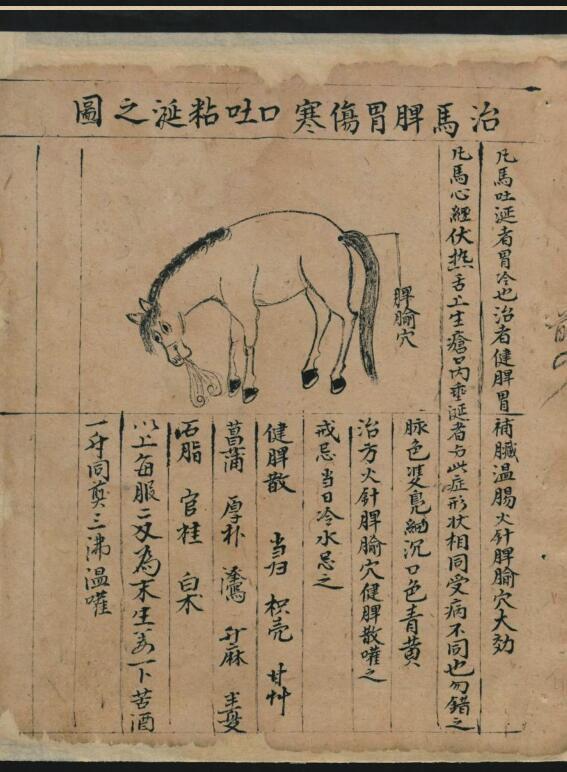 治馬脾胃傷寒口吐粘涎之圖
凡馬吐涎者胃冷也治者健脾胃補臟溫腸火針脾腧穴大効
凡馬心經伏热舌上生瘡口内垂涎者与此症形状相同受病不同也勿錯之
脾腧穴
脉色雙鳧細沉口色青黄
治方火针脾腧穴健脾散嚾之
戒忌当日冷水忌之
健脾散 当归 枳壳 甘艸
菖蒲 厚朴 升麻
石脂 官桂 白术
以上每服二 為末生姜一 苦酒
一升同煎三沸温嚾